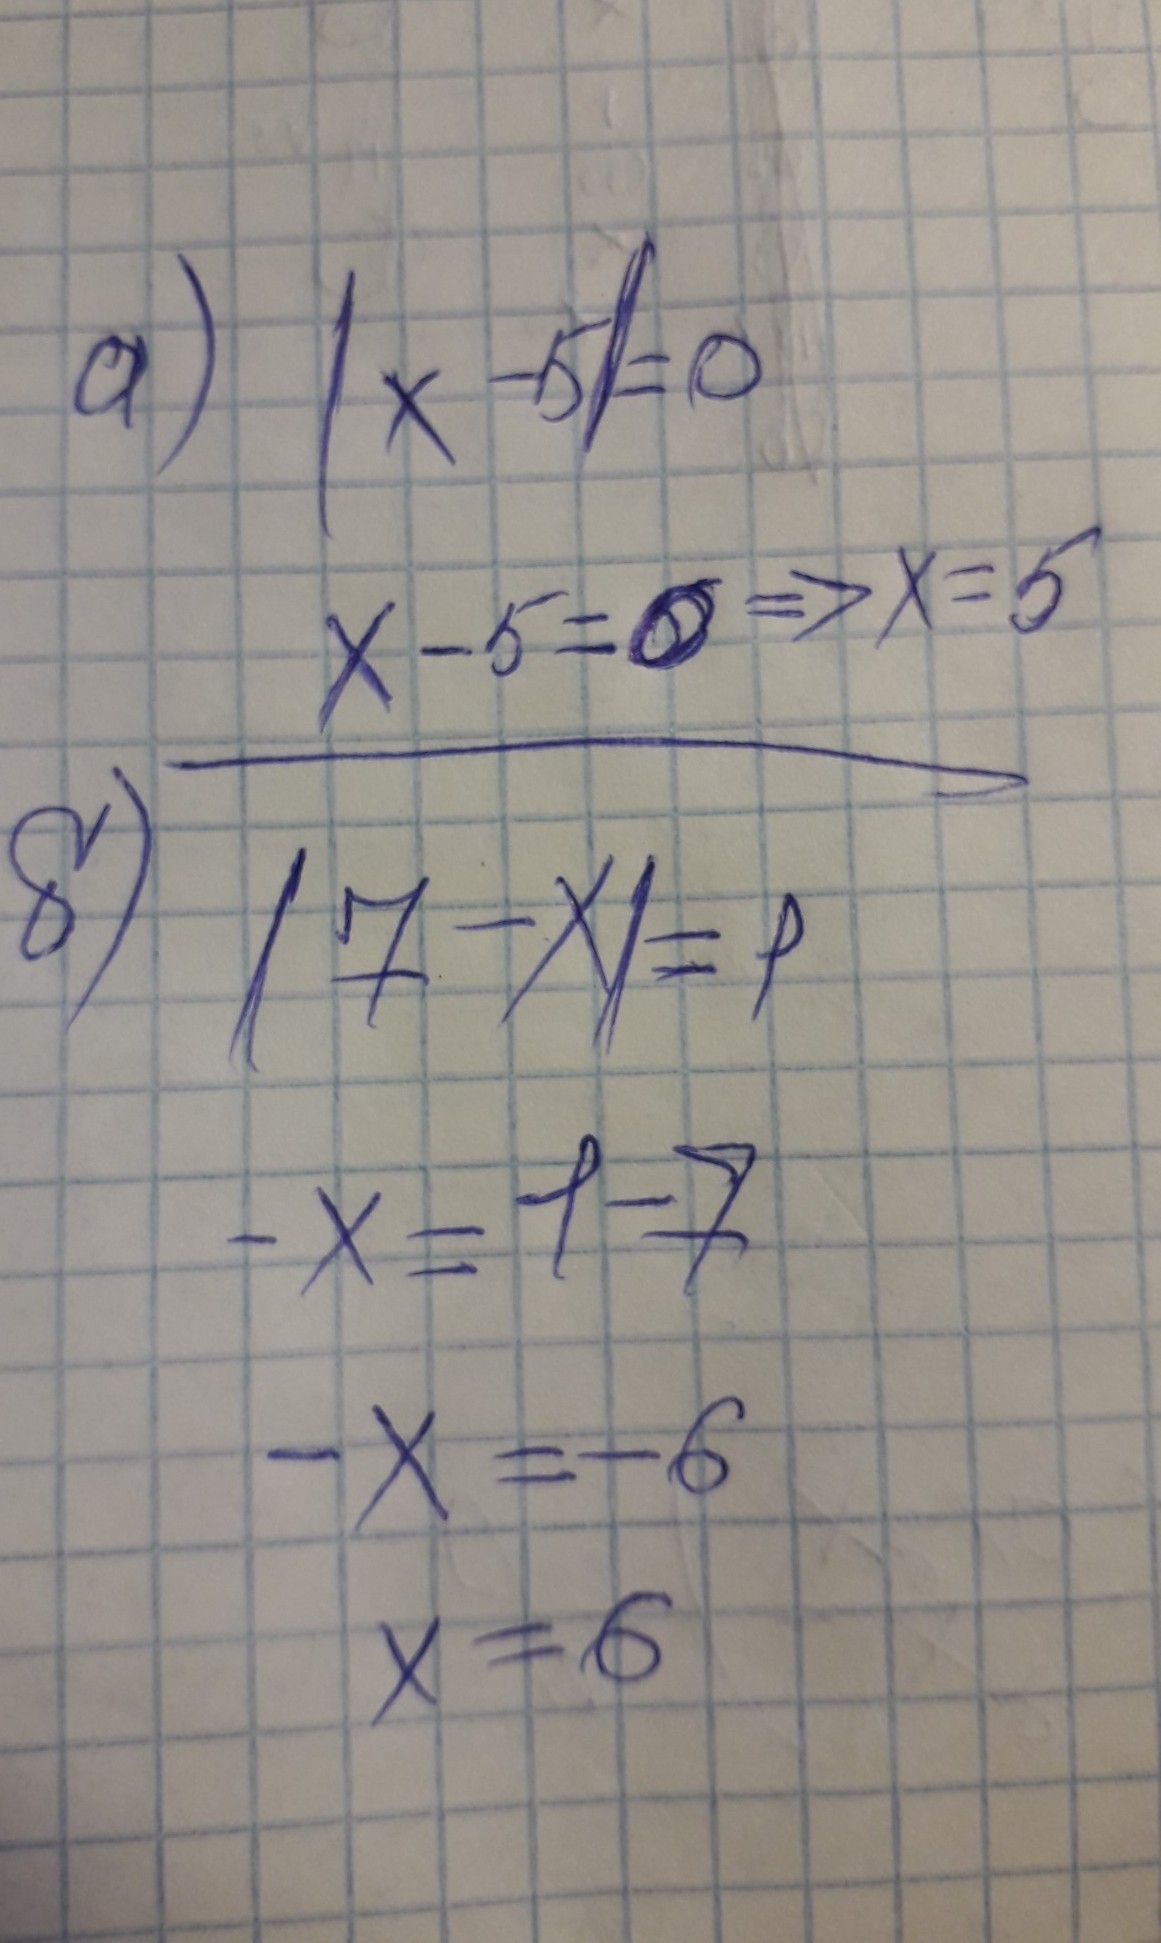 а) |x -5|=0
x-5=0 => x=5
б) |7-x|=1
-x=1-7
-x=-6
x=6